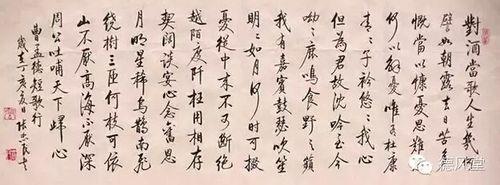 對酒當歌人生幾何
譬如朝露去日苦多
慨當以慷憂思難忘
何以解憂唯有杜康
青々子衿悠々我心
但為君故沈吟至今
呦々鹿鳴食野之蘋
我有嘉賓鼓瑟吹笙
明々如月何時可掇
憂從中來不可斷絕
越陌度阡枉用相存
契闊談宴心念舊恩
月明星稀烏鵲南飛
繞樹三匝何枝可依
山不厭高海不厭深
周公吐哺天下歸心
曹孟德短歌行
丁亥夏日張
德风堂